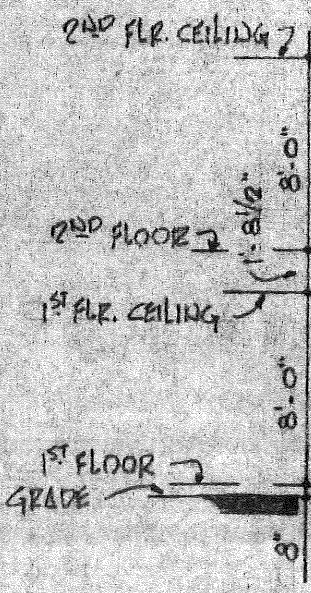 2ND FLR. CEILING
8'-0"
2ND FLOOR
1'-8 1/2"
1ST FLR. CEILING
8'-0"
1ST FLOOR
GRADE
8